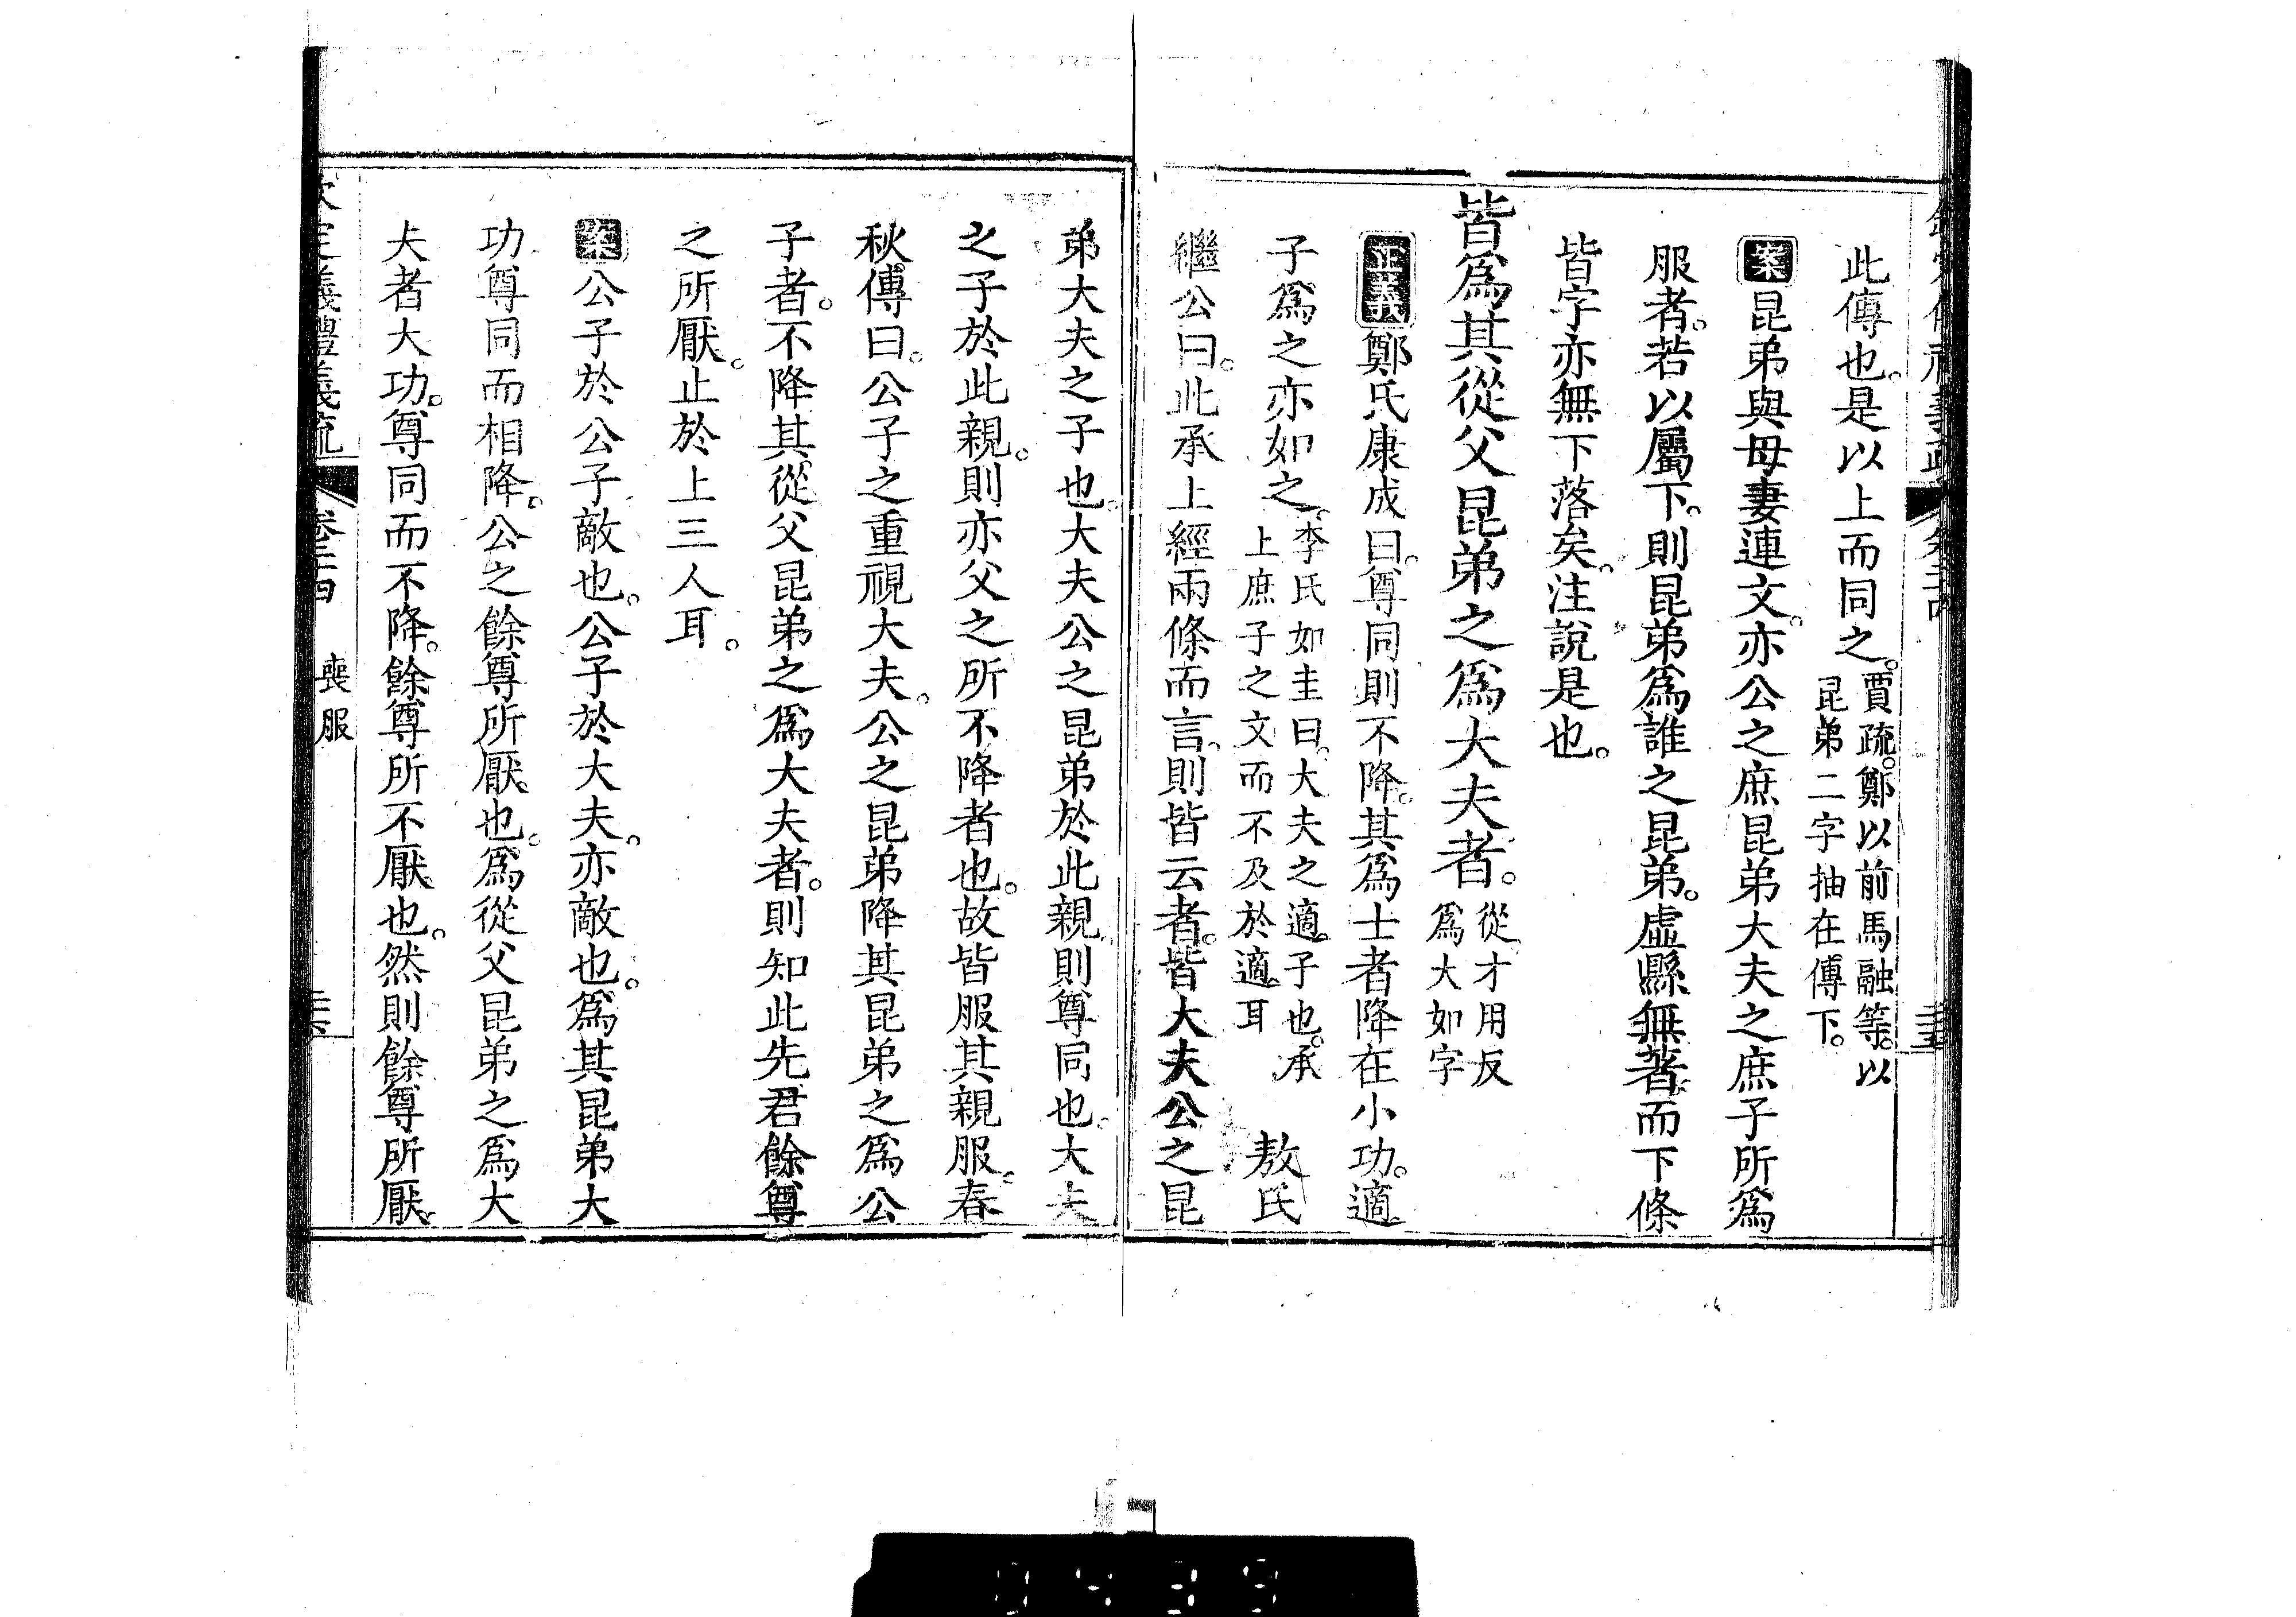 此傳也。是以上而同之。賈疏。鄭以前馬融等。以昆弟二字抽在傳下。
案昆弟與母妻連文。亦公之庶昆弟大夫之庶子所爲
服者。若以屬下。則昆弟爲誰之昆弟。虛縣無著。而下條
皆字亦無下落矣。注說是也。
皆爲其從父昆弟之爲大夫者。從才用反爲大如字
正義鄭氏康成曰。尊同則不降。其爲士者降在小功。適
子爲之亦如之。李氏如圭曰。大夫之適子也。承上庶子之文而不及於適耳 敖氏
繼公曰。此承上經兩條而言。則皆云者。皆大夫公之昆
弟大夫之子也。大夫公之昆弟於此親。則尊同也。大夫
之子於此親。則亦父之所不降者也。故皆服其親服。春
秋傳曰。公子之重視大夫。公之昆弟降其昆弟之爲公
子者。不降其從父昆弟之爲大夫者。則知此先君餘尊
之所厭。止於上三人耳。
案公子於公子敵也。公子於大夫。亦敵也。爲其昆弟大
功尊同而相降。公之餘尊所厭也。爲從父昆弟之爲大
夫者大功。尊同而不降。餘尊所不厭也。然則餘尊所厭。
欽定義禮義疏 卷二十四 喪服